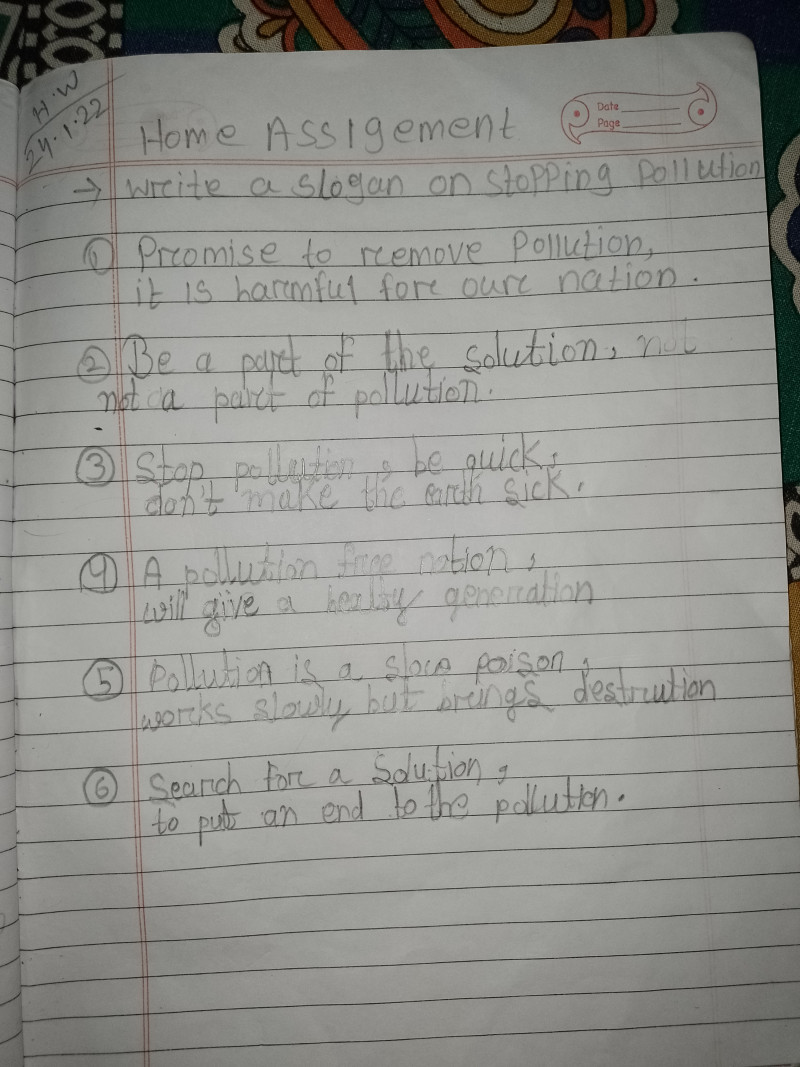 H.W
24.1.22
Home Assigement
Date
Page
→ Write a slogan on stopping pollution
① Promise to remove Pollution,
it is harmful for our nation.
② Be a part of the solution, not
not a part of pollution.
③ Stop pollution, be quick,
don't make the earth sick.
④ A pollution free nation,
will give a healthy generation
⑤ Pollution is a slow poison,
works slowly but brings destruction
⑥ Search for a Solution,
to put an end to the pollution.